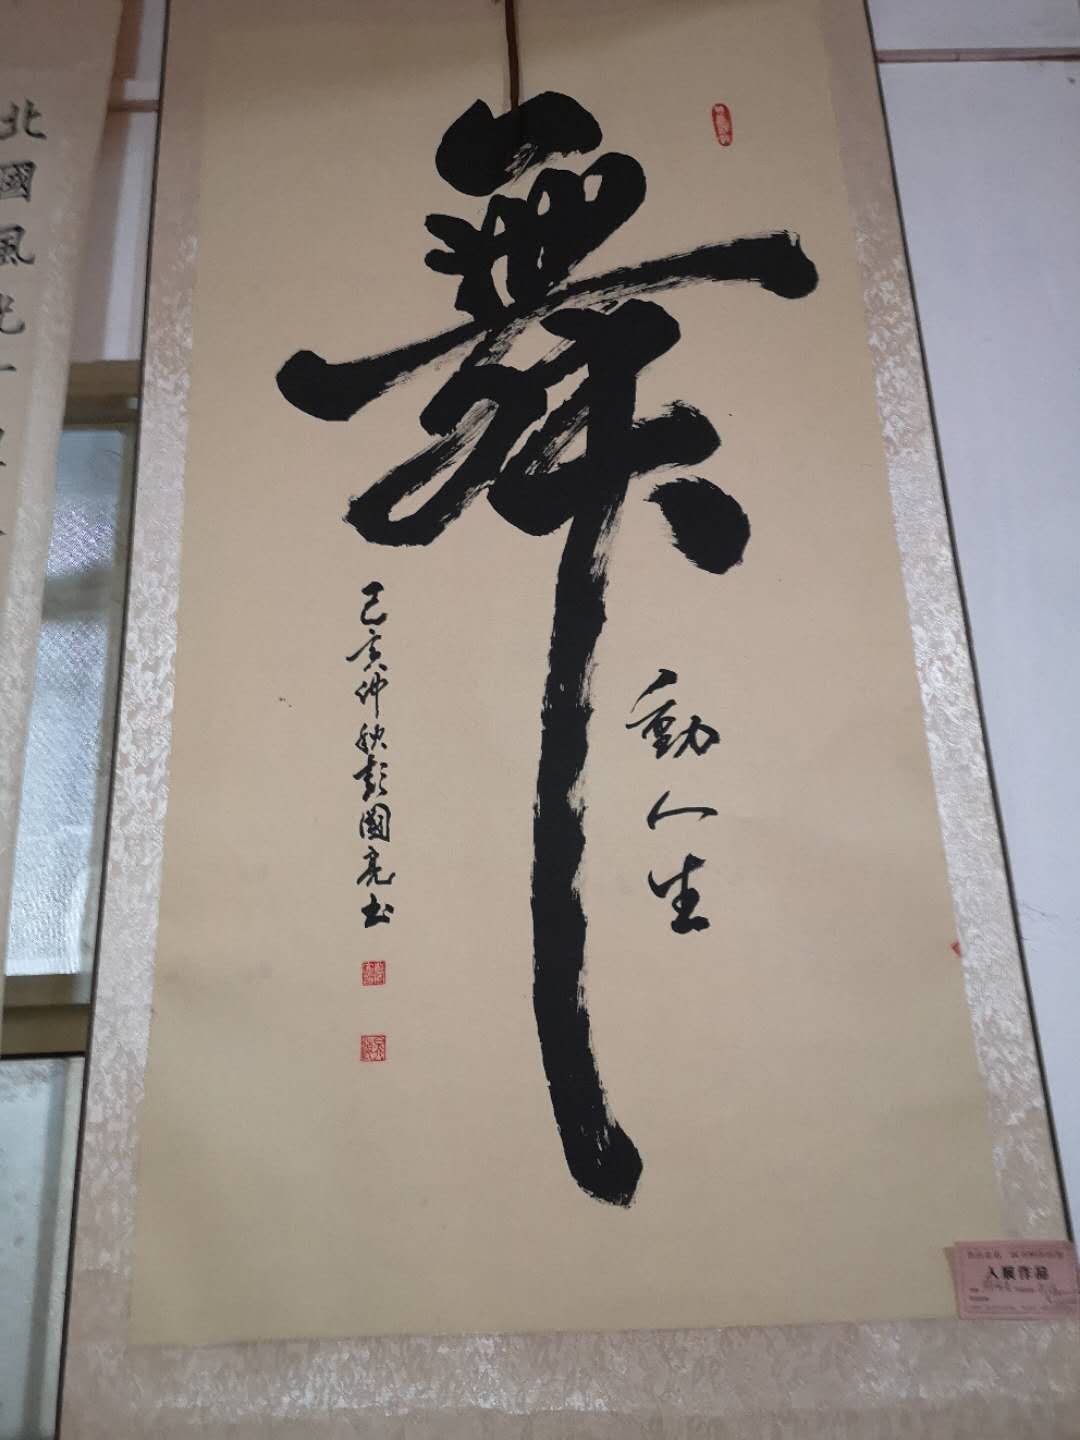 舞
動人生
己亥仲秋彭國亮书
北國風光一
入展作品